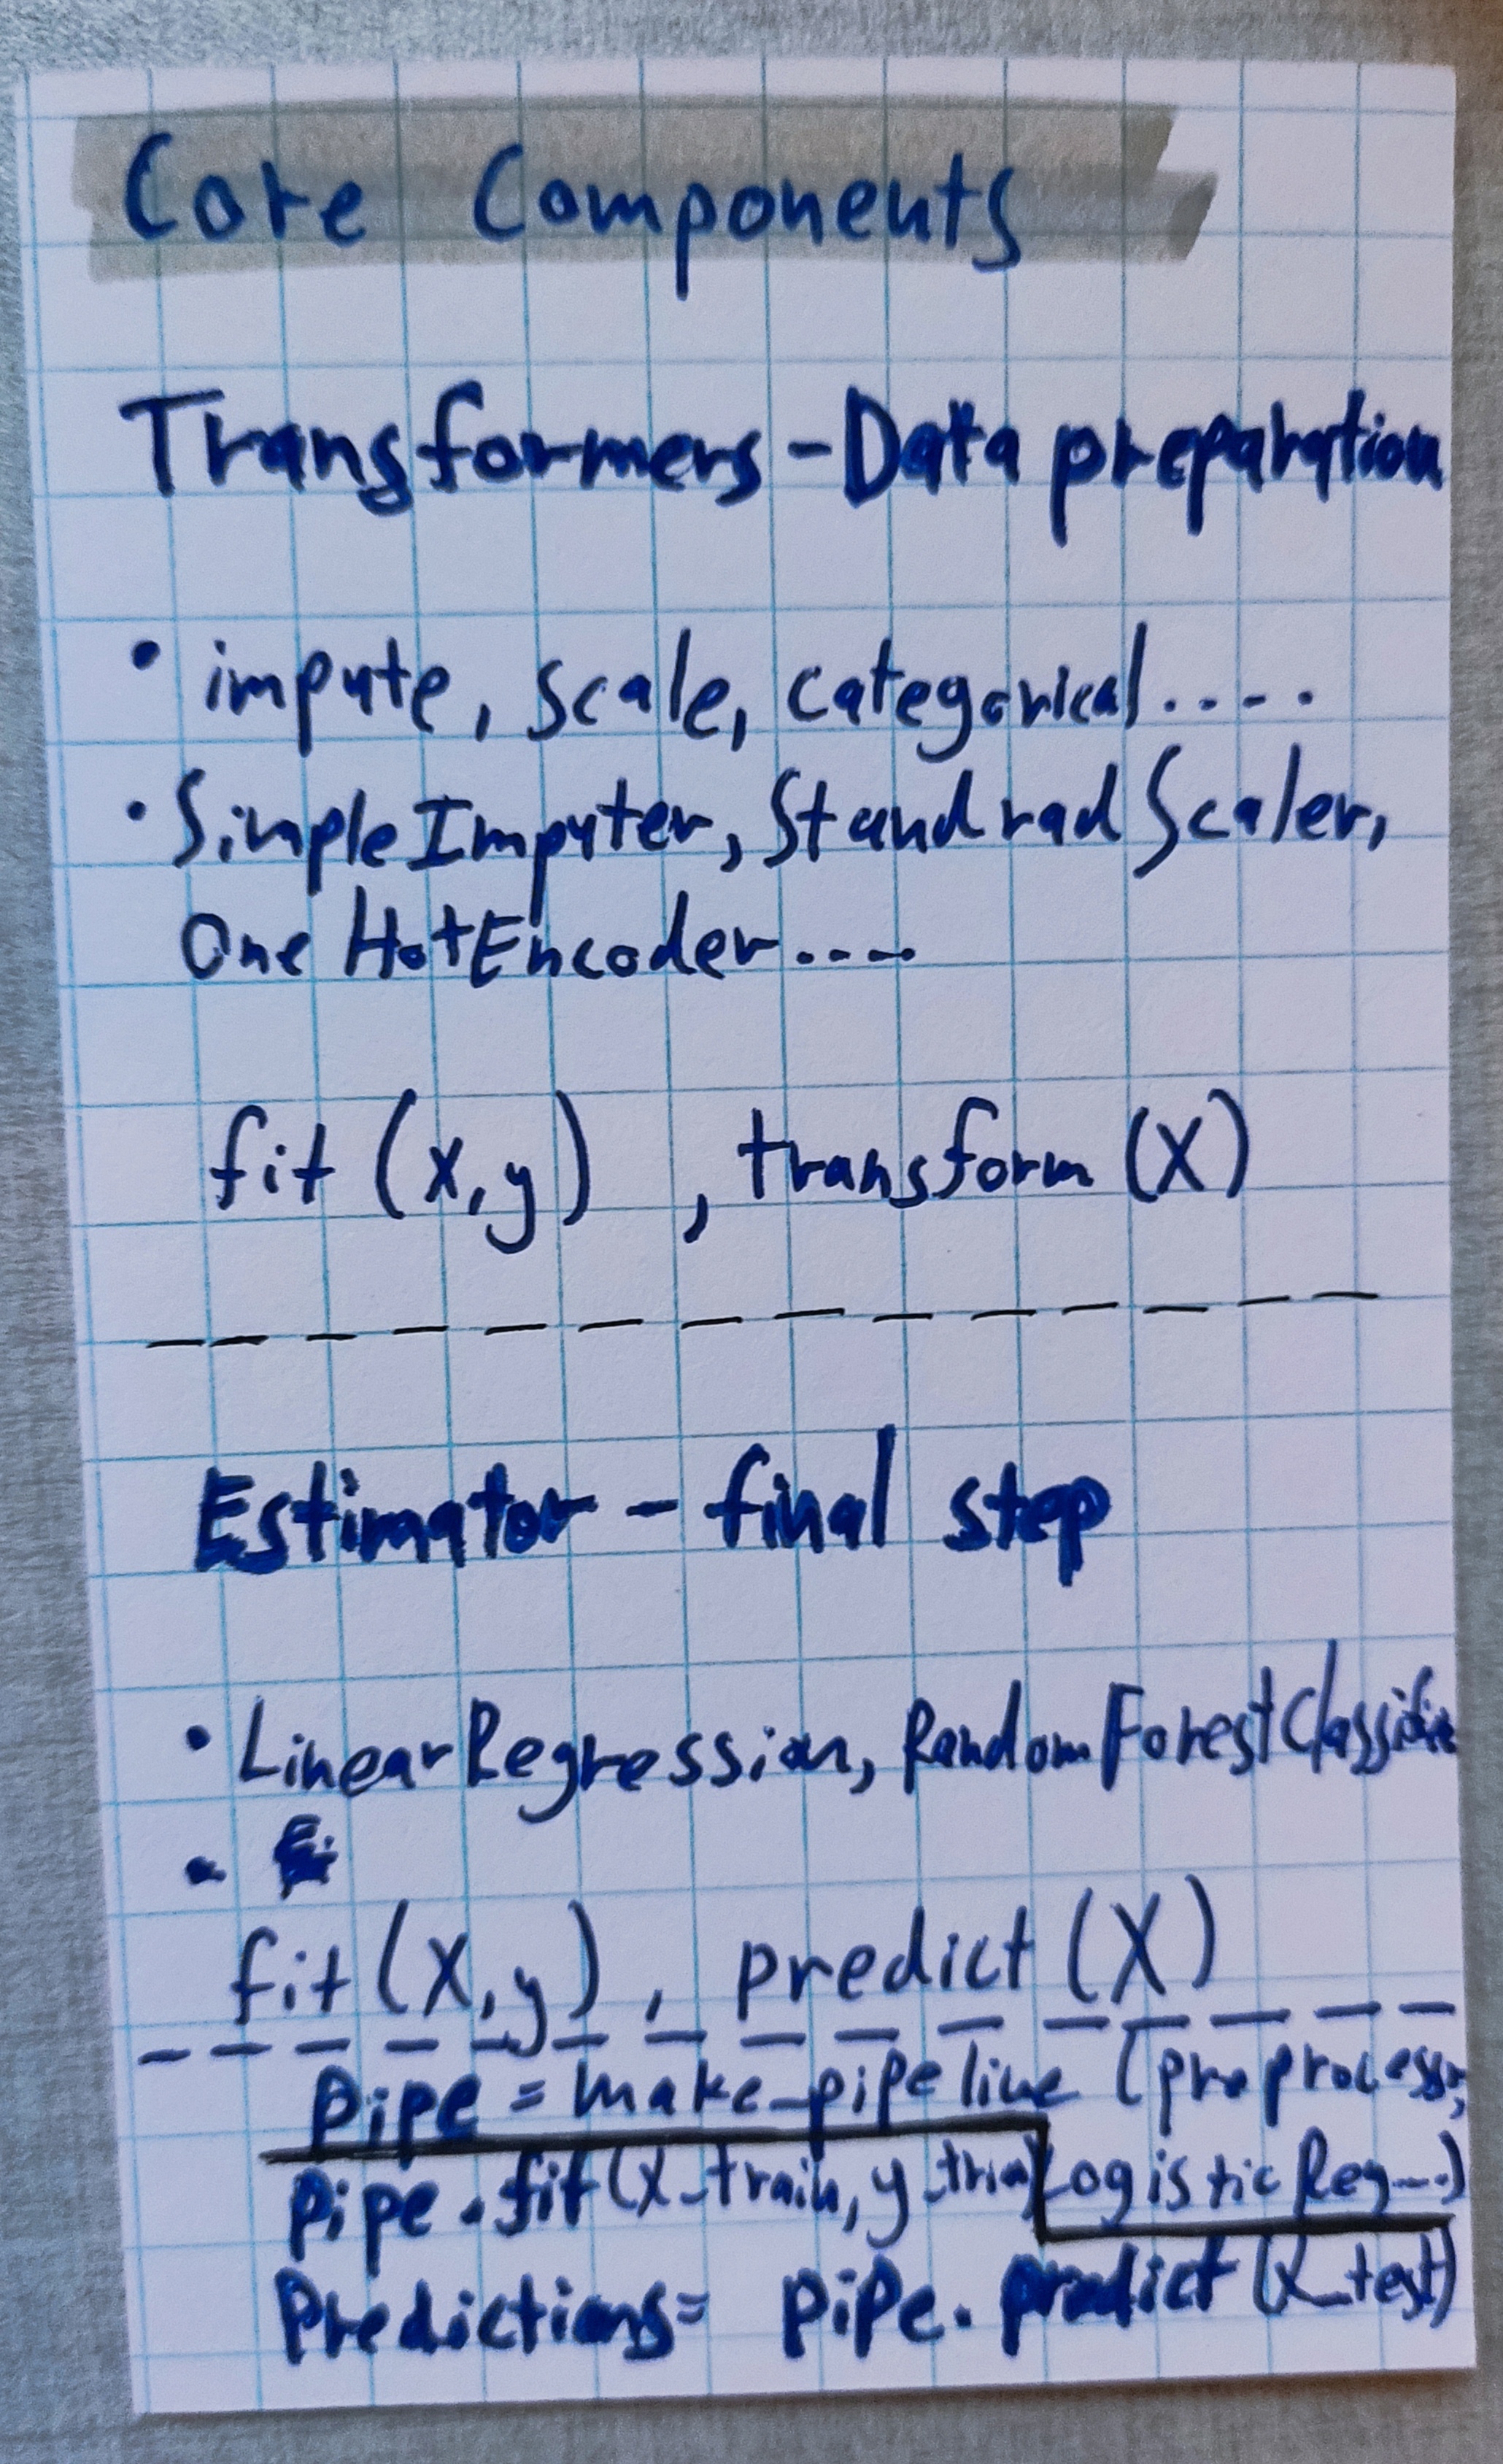 Core Components
Transformers - Data preparation
• impute, scale, categorical....
• SimpleImputer, StandradScaler,
One HotEncoder....
fit (x,y) , transform (X)
Estimator - final step
• LinearRegression, RandomForestClassifie
•
fit (X,y), predict (X)
pipe = make_pipeline (preprocess,
LogisticReg...)
pipe.fit(x_train, y_
Predictions= pipe.predict(X_test)